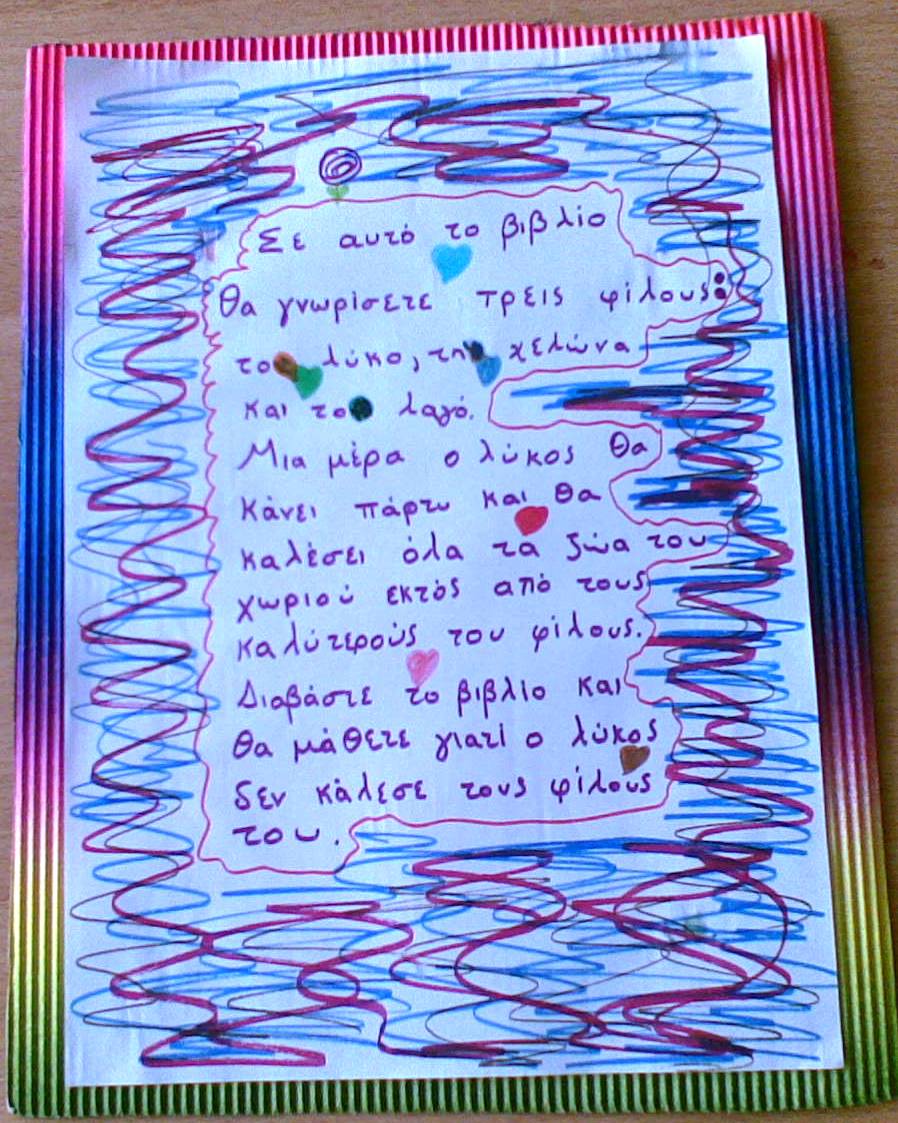 Σε αυτό το βιβλίο
θα γνωρίσετε τρεις φίλους:
το λύκο, τη χελώνα
και το λαγό.
Μια μέρα ο λύκος θα
κάνει πάρτυ και θα
καλέσει όλα τα ζώα του
χωριού εκτός από τους
καλύτερούς του φίλους.
Διαβάστε το βιβλίο και
θα μάθετε γιατί ο λύκος
δεν κάλεσε τους φίλους
του.